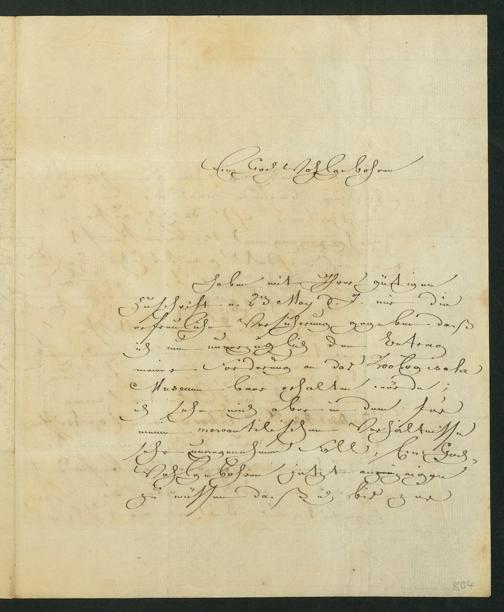 Euer Hoch Wohlgebohren
haben mit Ihrer gütigen
Zuschrift v. 23 May d. J. mir die
erfreuliche Versicherung gegeben daß
ich nun unverzüglich den Betrag
meiner Forderung an das Zoologische
Museum baar erhalten würde;
ich sehe mich aber in dem für
meine mercantilischen Verhältnisse
sehr unangenehmen Fall, Euer Hoch-
Wohlgebohren jetzt anzeigen
zu müssen daß ich bis zur
804